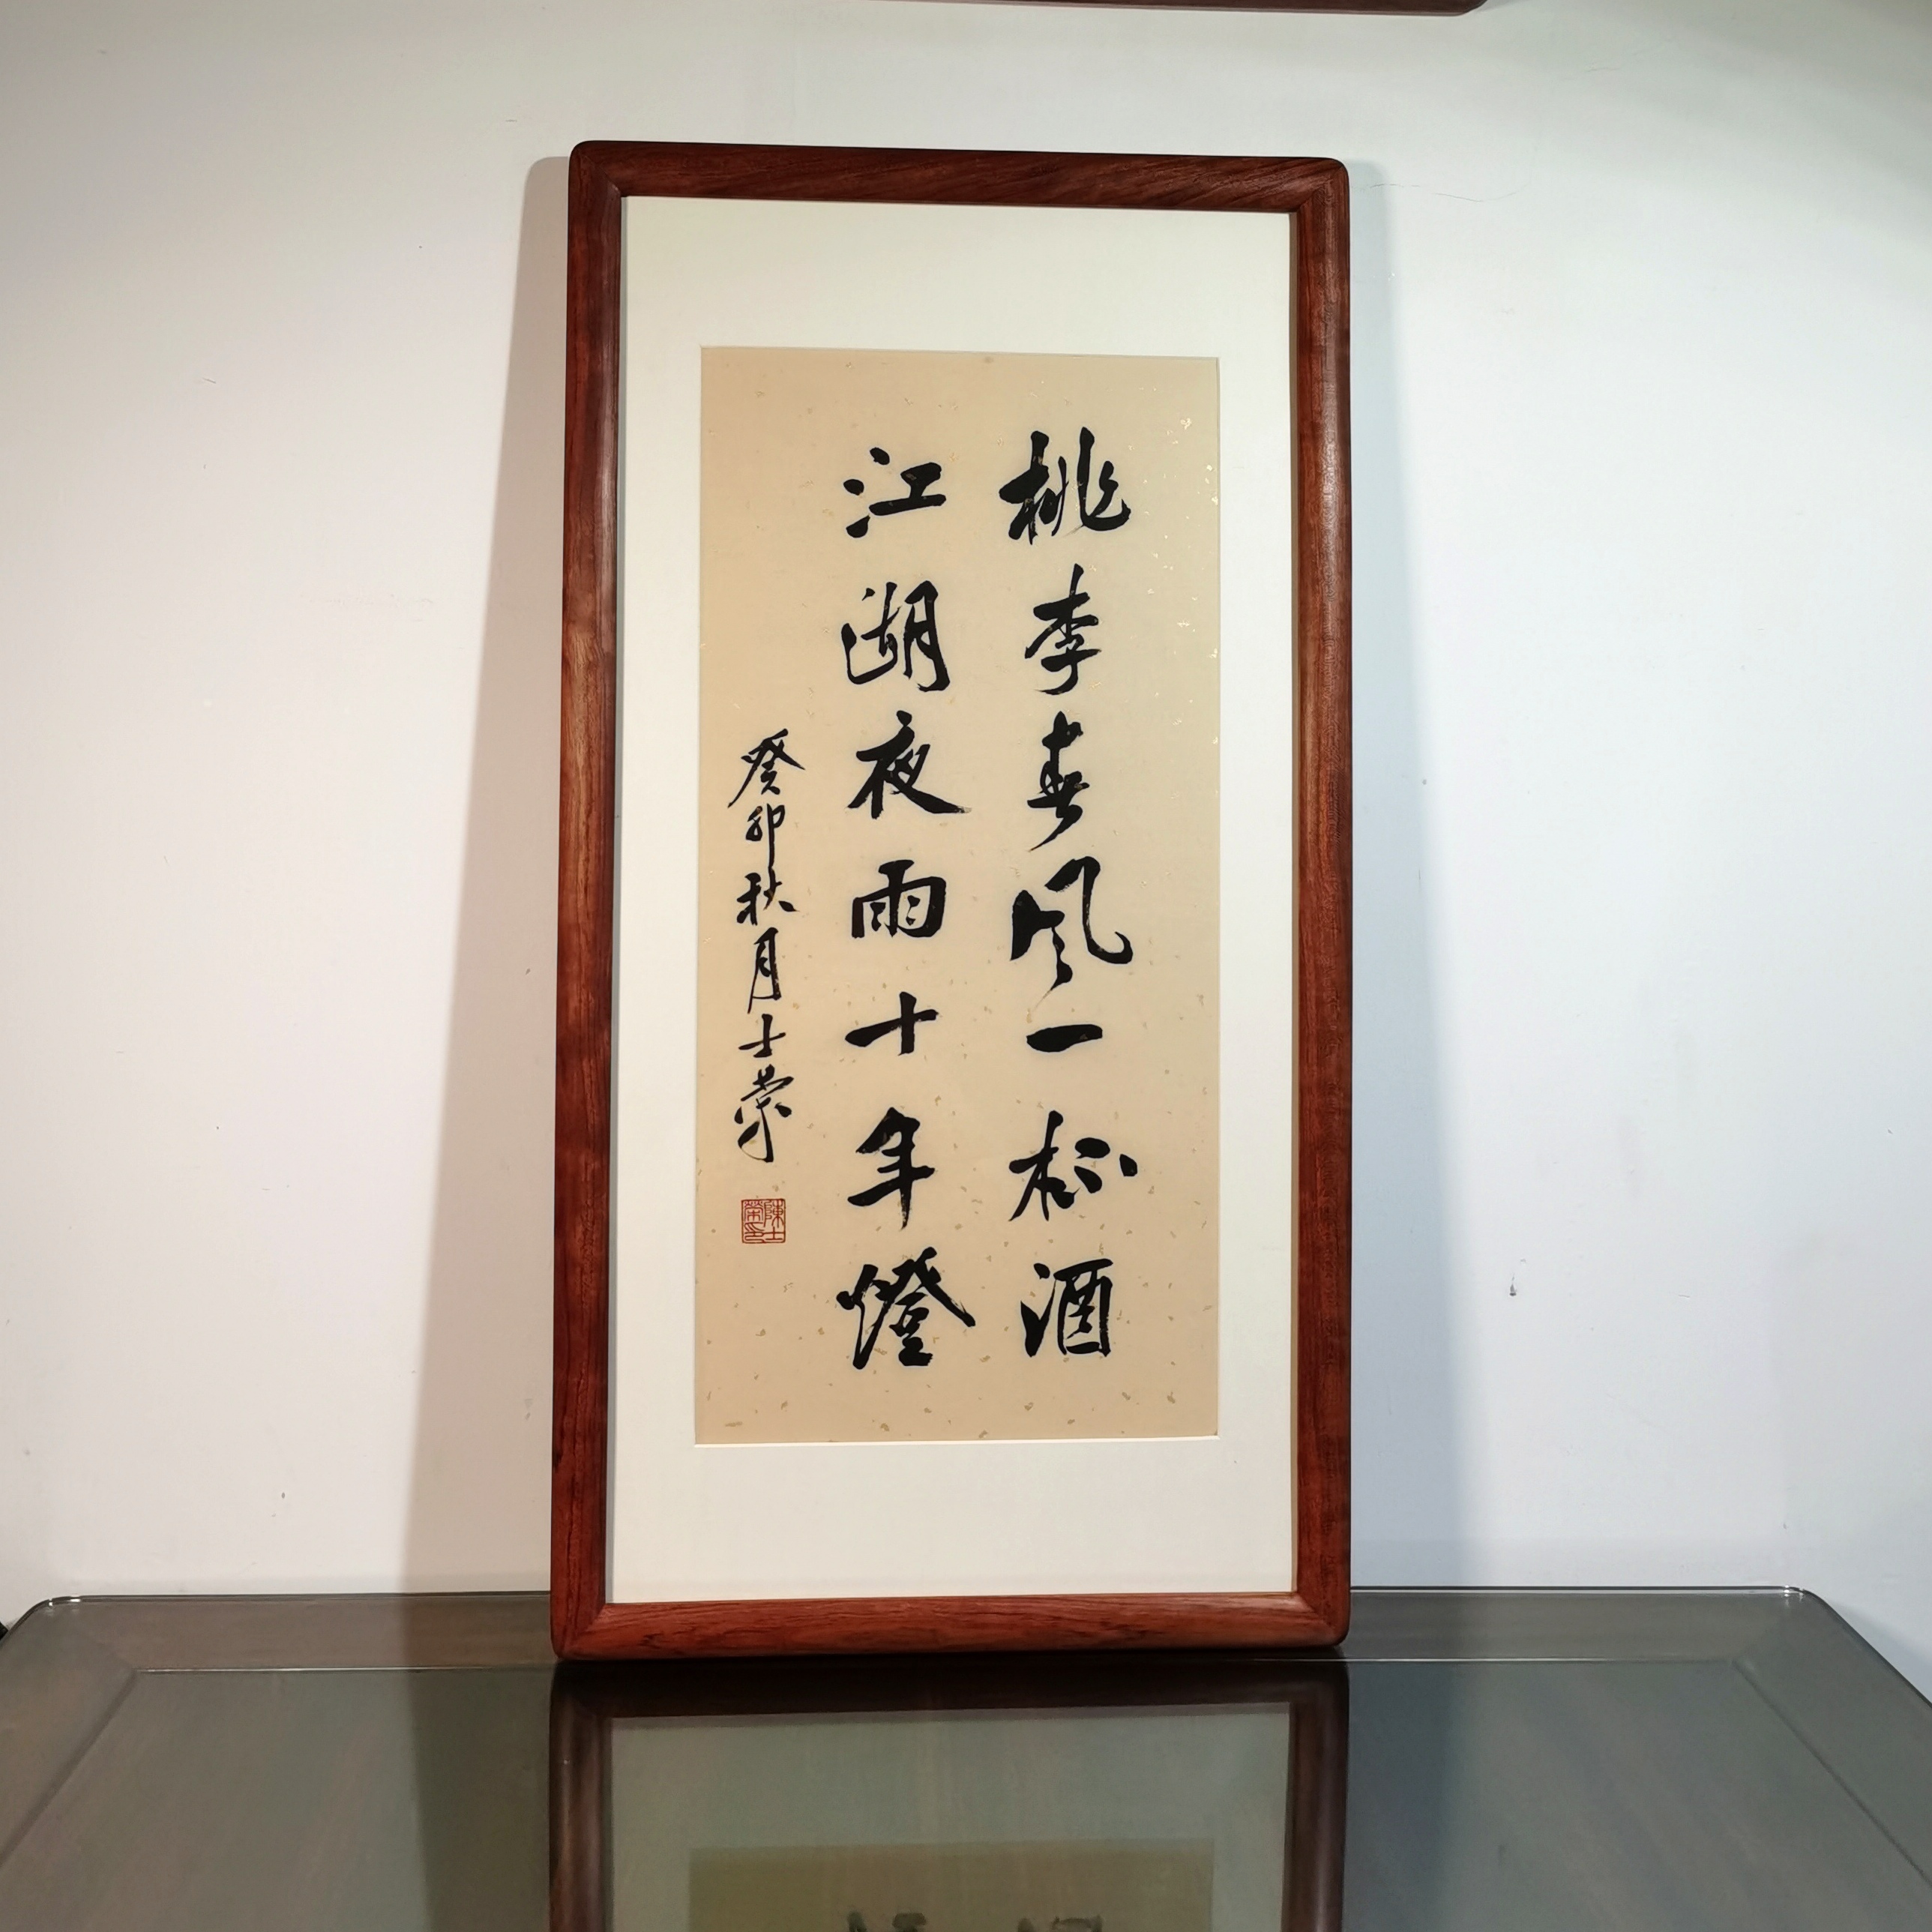 桃李春風一杯酒
江湖夜雨十年燈
癸卯秋月士榮
陳士榮印